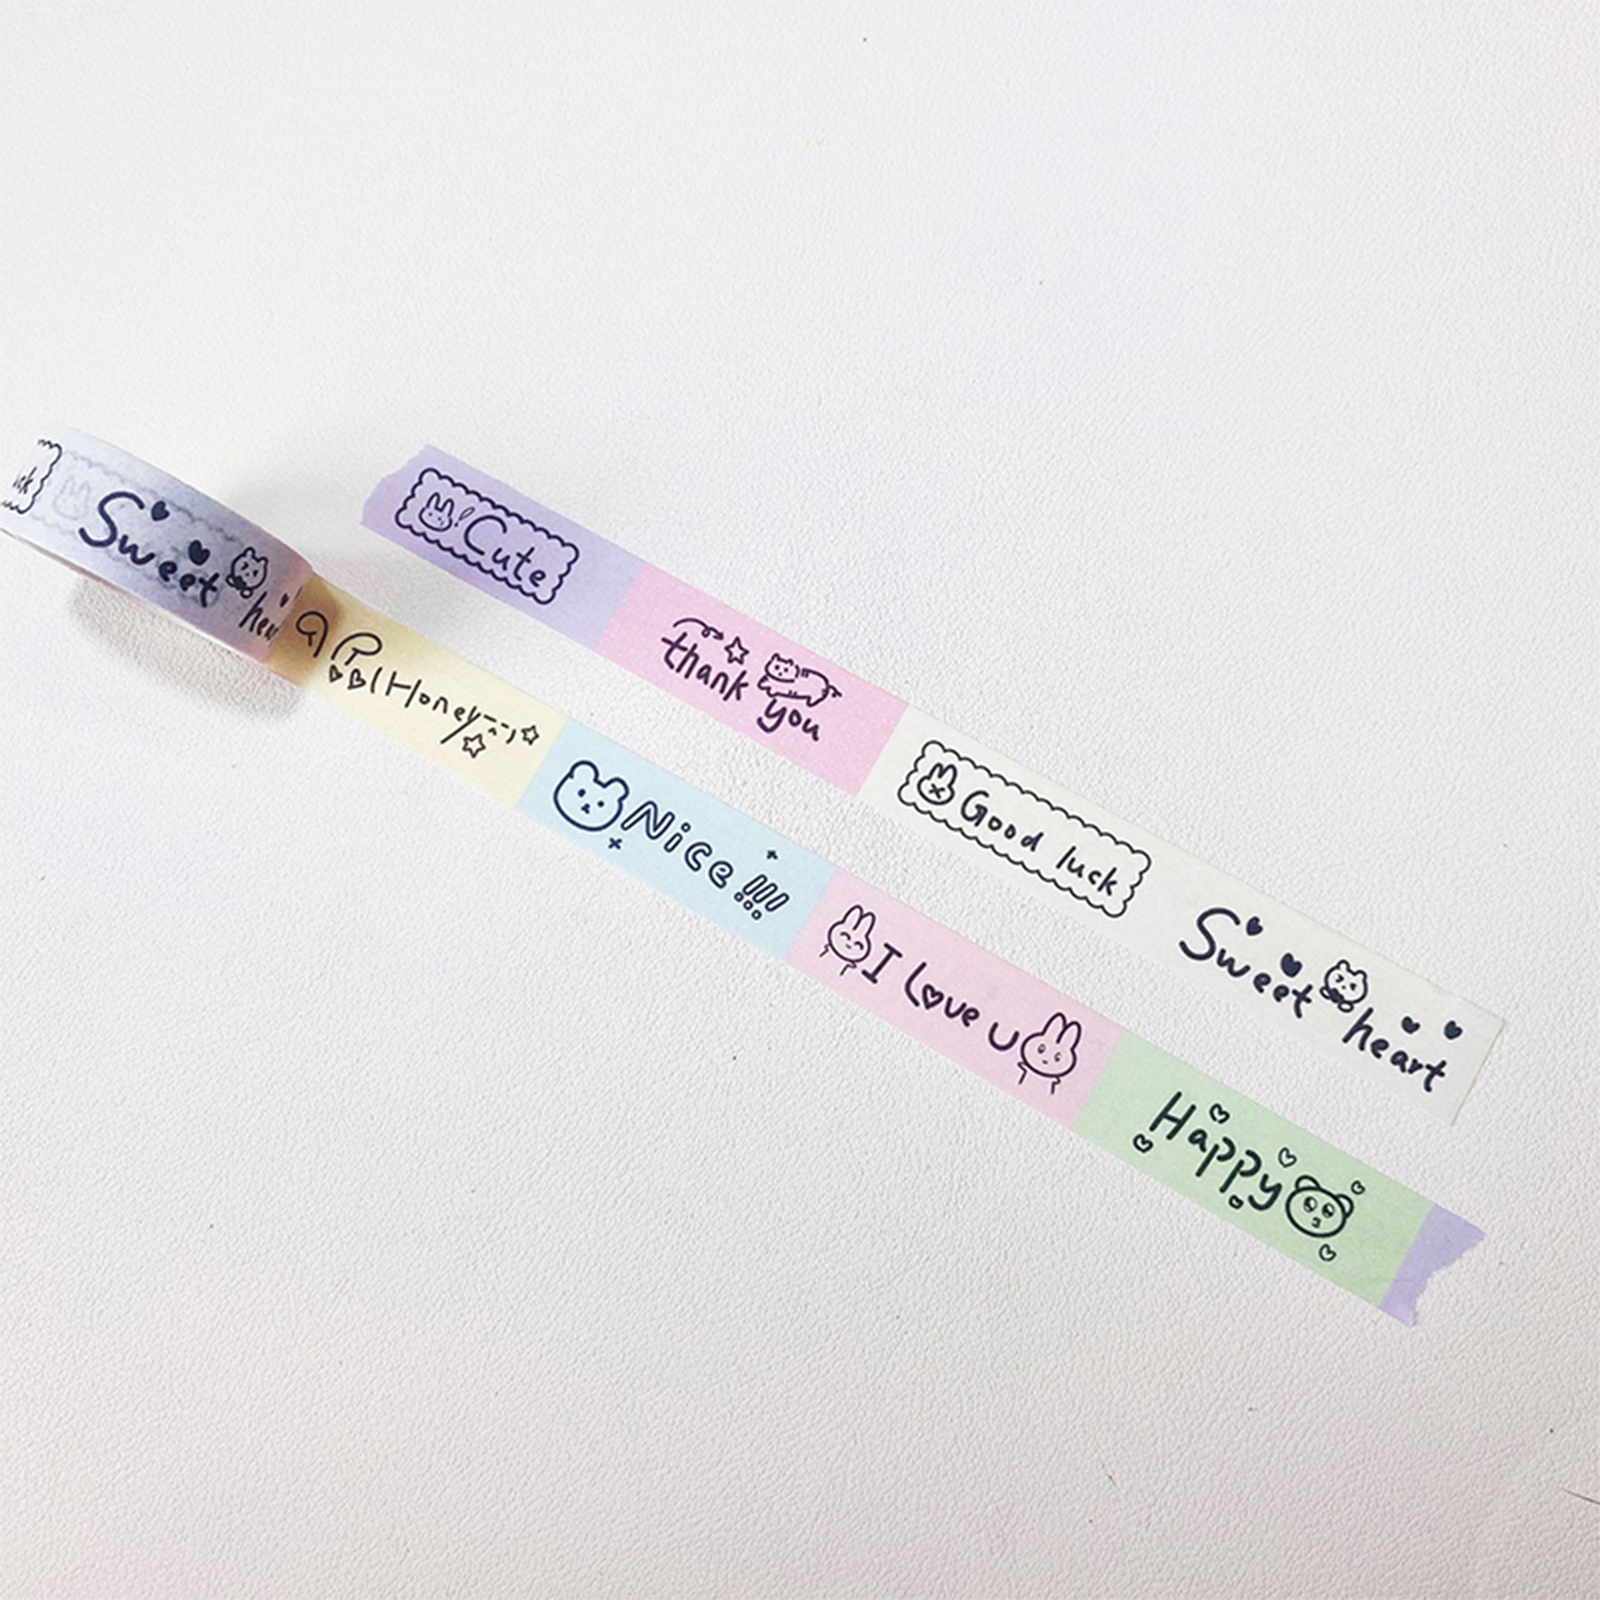 Cute
thank you
Good luck
Sweet heart
Sweet
Honey
Nice!!!
I Love U
Happy